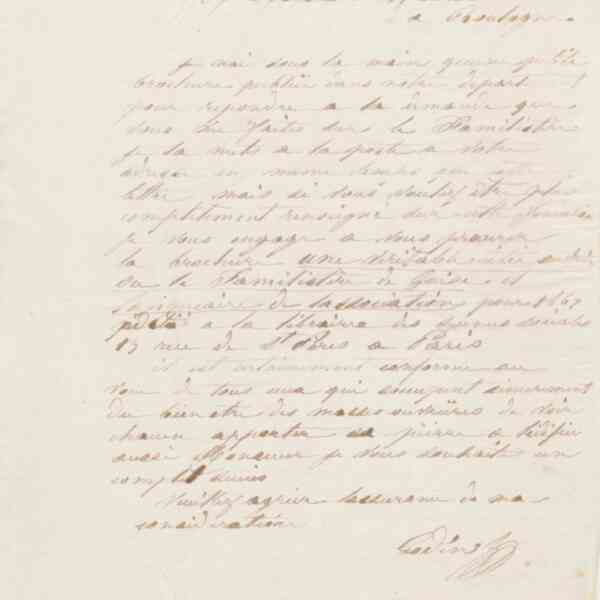 a Boulogne.
Je n'ai sous la main qu'une petite
brochure publiée dans notre départ
pour repondre a la demande que
vous me faites sur le Familistère
je la mets a la poste a votre
adresse en même temps que cette
lettre, mais si vous voulez être plus
completement renseigné sur cette
je vous engage a vous procurer
la brochure une véritable cité
ou le Familistère de Guise. et
de lassociation pour 1867
a la librairie des sciences sociales
13 rue de St Pères a Paris
il est entierement conforme au
voeu de tous ceux qui songent sincerement
du bien être des masses ouvrières de voir
chacun apporter sa pierre a lédifice
aussi Monsieur je vous souhaite un
complet succès
Veuillez agréer lassurance de ma
considération
Godin